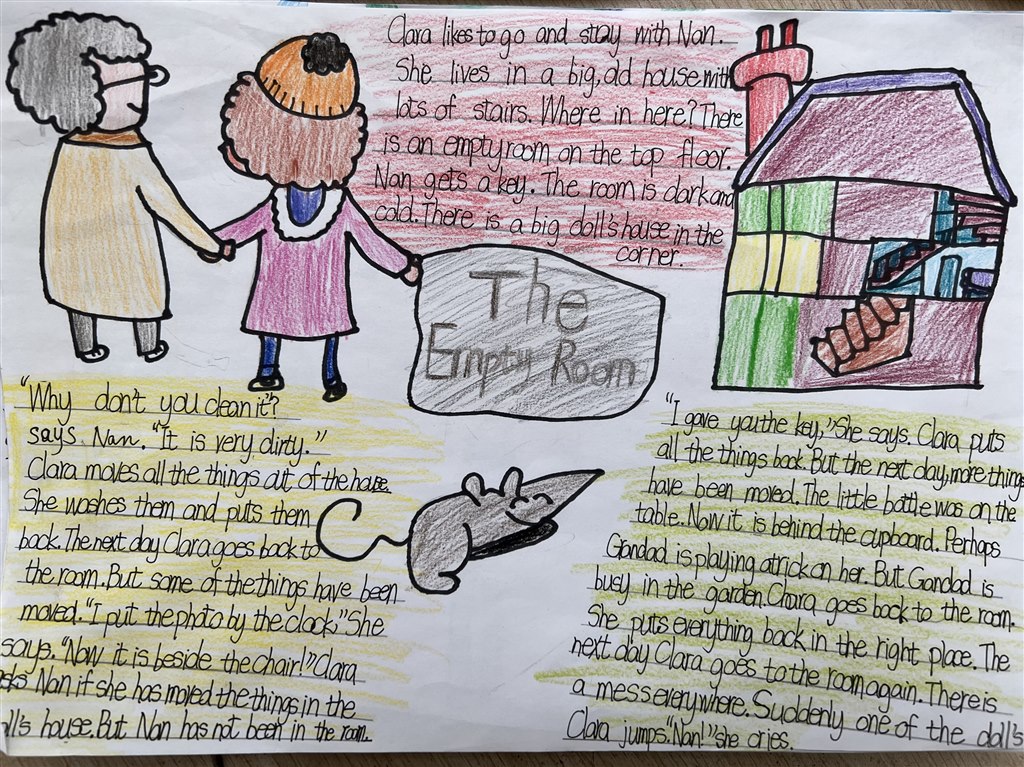 Clara likes to go and stay with Nan.
She lives in a big, old house with
lots of stairs. Where in here? There
is an empty room on the top floor.
Nan gets a key. The room is dark and
cold. There is a big doll's house in the
corner.
The
Empty Room
"Why don't you clean it"?
says Nan. "It is very dirty."
Clara moves all the things out of the house.
She washes them and puts them
back. The next day Clara goes back to
the room. But some of the things have been
moved. "I put the photo by the clock," She
says. "Now it is beside the chair!" Clara
asks Nan if she has moved the things in the
doll's house. But Nan has not been in the room.
"I gave you the key," She says. Clara puts
all the things back. But the next day, more things
have been moved. The little bottle was on the
table. Now it is behind the cupboard. Perhaps
Grandad is playing a trick on her. But Gandad is
busy in the garden. Chara goes back to the room.
She puts everything back in the right place. The
next day Clara goes to the room again. There is
a mess everywhere. Suddenly one of the doll's
Clara jumps. "Nan!" she cries.